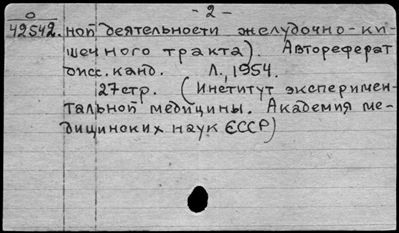 - 2 -
0
42542. ной деятельности желудочно-ки-
шечного тракта). Автореферат
дисс. канд. Л., 1954.
27 стр. (Институт эксперимен-
тальной медицины. Академия ме-
дицинских наук СССР)